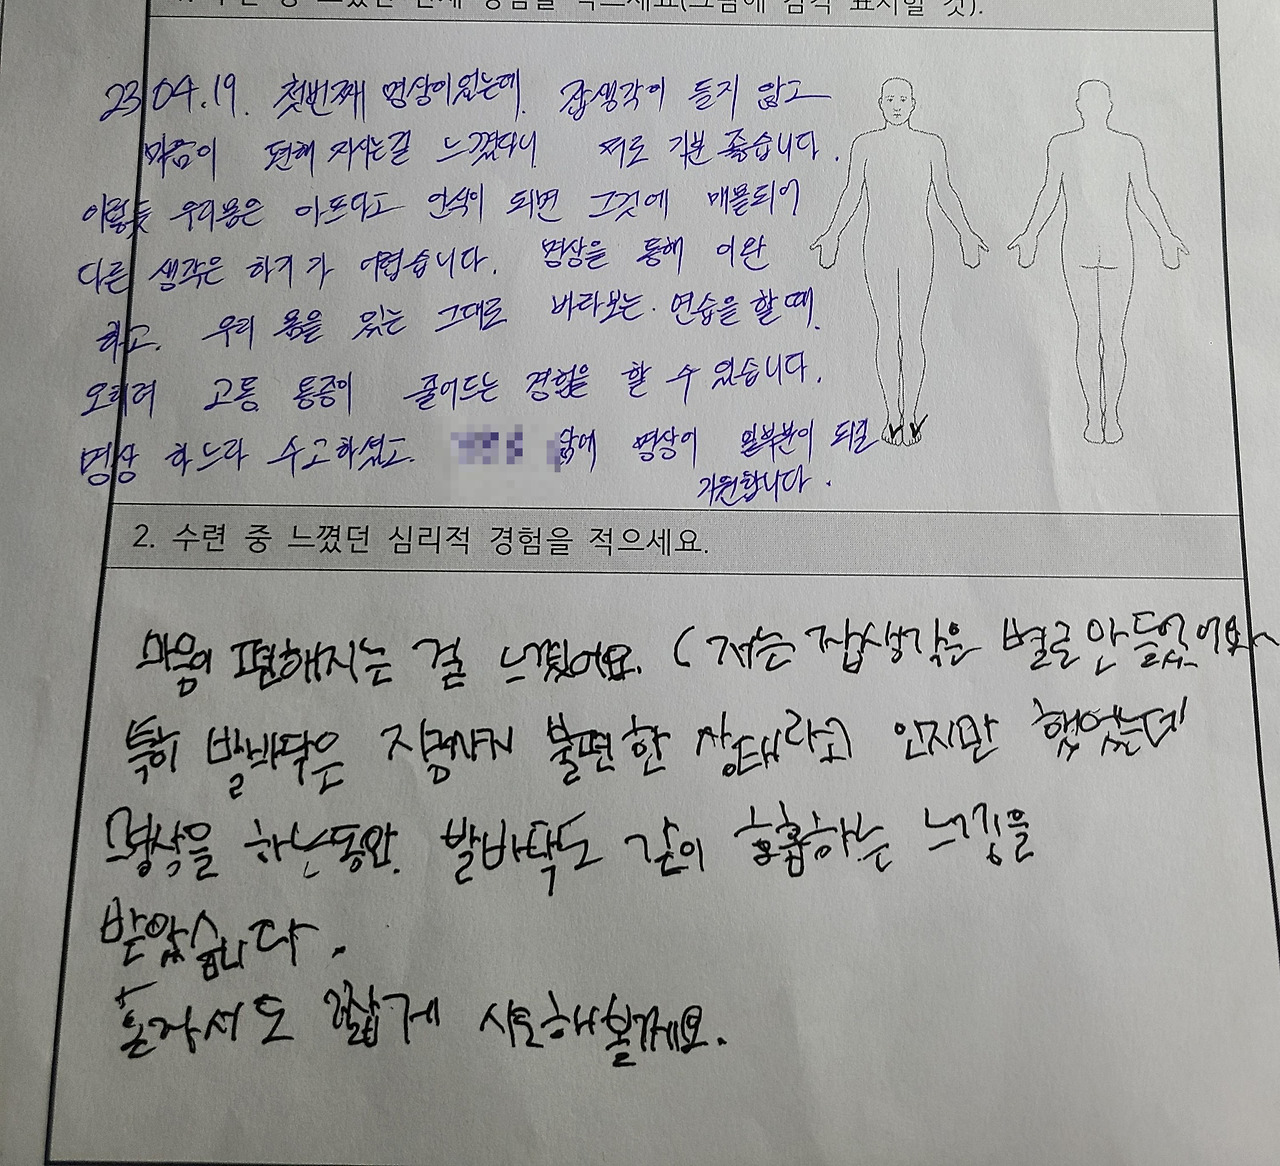 1. 수련 중 느꼈던 신체 경험을 적으세요(그림에 감각 표시할 것).
23.04.19. 첫번째 명상이었는데 잡생각이 들지 않고
마음이 편해 지시는걸 느꼈다니 저도 기분 좋습니다.
이렇듯 우리몸은 아프다고 인식이 되면 그것에 매몰되어
다른 생각은 하기가 어렵습니다. 명상을 통해 이완
하고. 우리 몸을 있는 그대로 바라보는 연습을 할 때
오히려 고통. 통증이 줄어드는 경험을 할 수 있습니다.
명상 하느라 수고하셨고. 삶에 명상이 일부분이 되길
기원합니다.
2. 수련 중 느꼈던 심리적 경험을 적으세요.
마음이 편해지는 걸 느꼈어요. (저는 잡생각은 별로 안 들었어요~
특히 발바닥은 자꾸 불편한 상태라고 인지만 했었는데
명상을 하는동안. 발바닥도 같이 호흡하는 느낌을
받았습니다.
혼자서도 짧게 시도해볼게요.